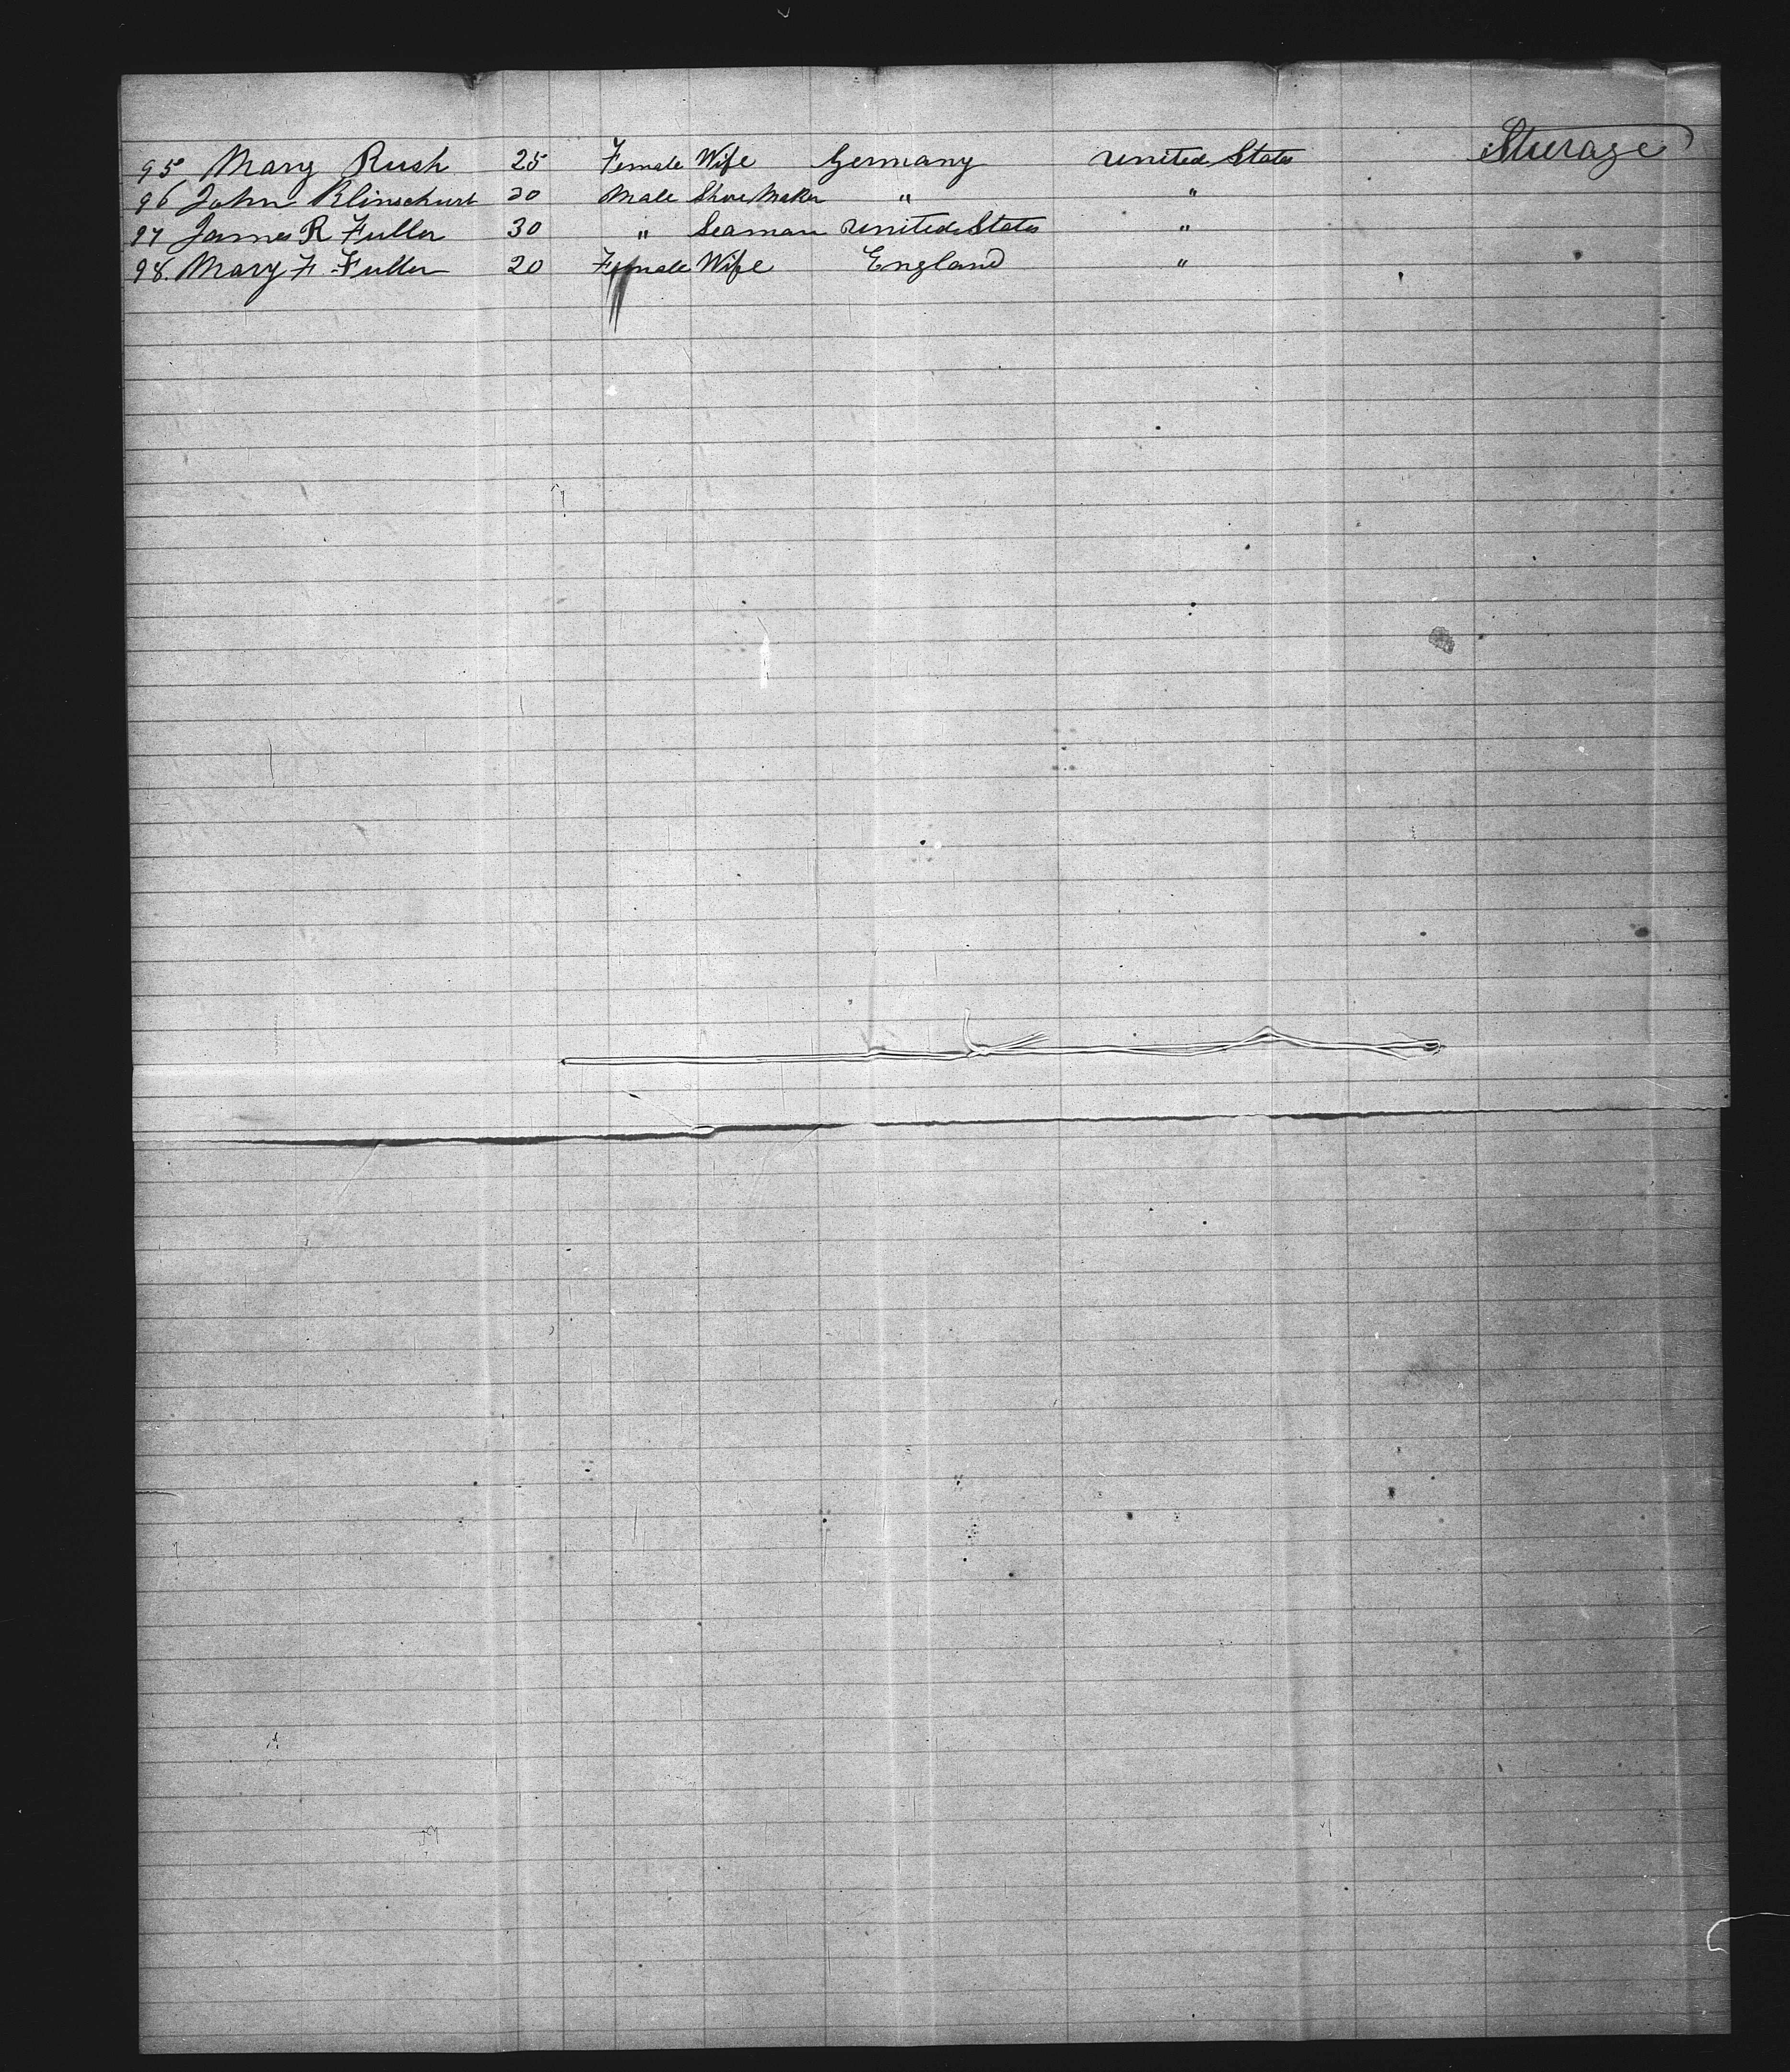 95 Mary Rush 25 Female Wife Germany United States Steerage
96 John Klinschurt 30 Male Shoe Maker " "
97 James R Fuller 30 " Seaman United States "
98. Mary F. Fuller 20 Female Wife England "